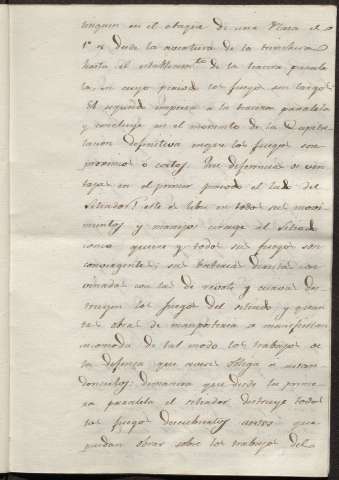 tinguen en el ataque de una Plaza el
1º es desde la avertura de la trinchera
hasta el establecimto de la tercera parale
la, en cuyo periodo los fuegos son largos
El segundo empieza a la tercera paralela
y concluye en el momento de la Capitu
lacion definitiva cuyos fuegos son
proximos ó cortos. Que diferencia de ven
tajas en el primer periodo el lado del
Sitiador! este es libre en todos sus movi
mientos y manejos circuye al Sitiado
como quiere y todos sus fuegos son
convergentes; sus baterias directas com
vinadas con las de revote y curvas des
truyen los fuegos del sitiado; y quan
tas obras de mamposteria se manifiestan
incomoda de tal modo los trabajos de
la defensa que aveces obliga a aban
donarlos; demanera que desde la prime
ra paralela el sitiador destruye todos
los fuegos descubiertos que
puedan obrar sobre los trabajos del